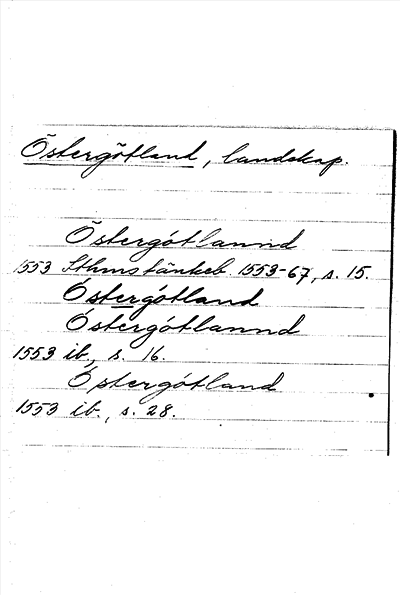 Östergötland, landskap.
Östergótlannd
1553 Sthms tänkeb. 1553-67, s. 15.
Óstergótland
Óstergótlannd
1553 ib., s. 16.
Óstergótland
1553 ib., s. 28.